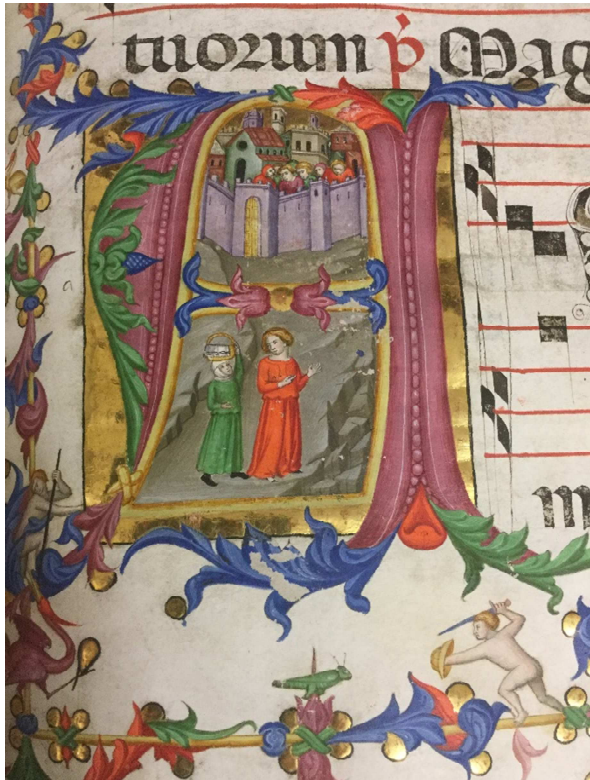 tuorum p̉ Mag
A
a
m